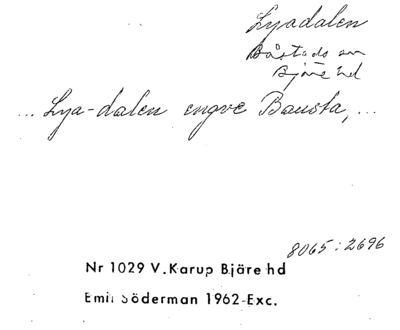 Lyadalen
Båstads sn
Bjäre hd
... Lya-dalen engve Bausta, ...
8065:2696
Nr 1029 V.Karup Bjäre hd
Emil Söderman 1962-Exc.